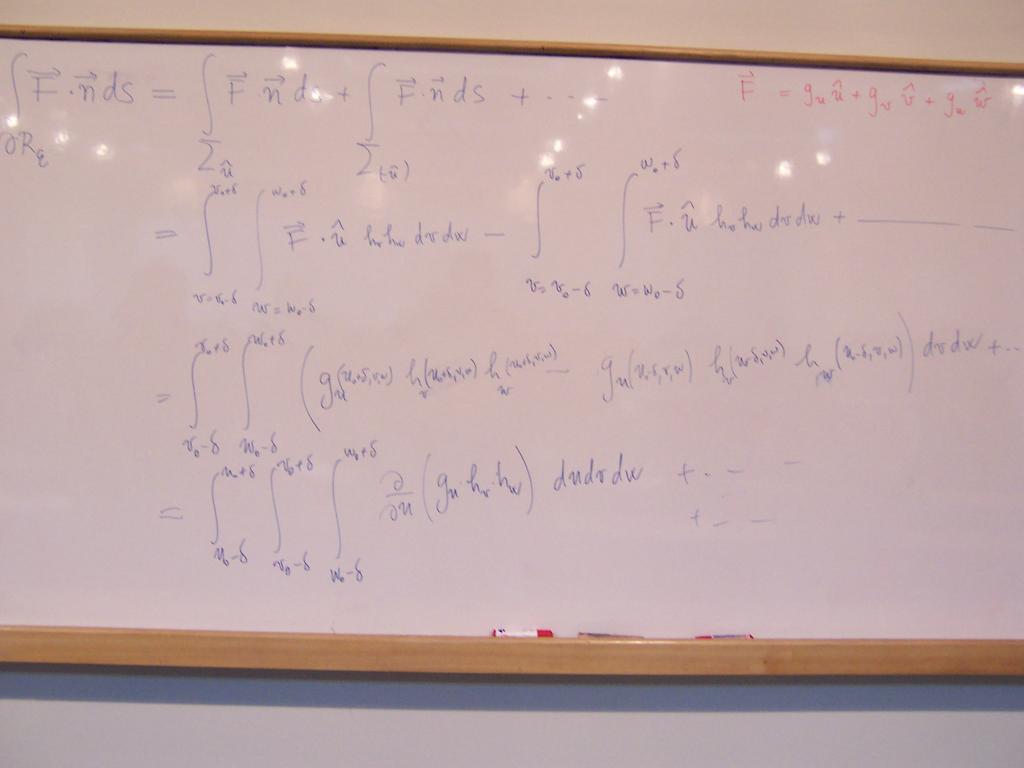 ∫_{∂R_ε} F⃗ · n⃗ ds = ∫_{Σ_û} F⃗ · n⃗ ds + ∫_{Σ_(-û)} F⃗ · n⃗ ds + · · · –
F⃗ = g_u û + g_v v̂ + g_u ŵ
= ∫_{v=v₀-δ}^{v₀+δ} ∫_{w=w₀-δ}^{w₀+δ} F⃗ · û h_v h_w dv dw – ∫_{v=v₀-δ}^{v₀+δ} ∫_{w=w₀-δ}^{w₀+δ} F⃗ · û h_v h_w dv dw + ——— —
= ∫_{v₀-δ}^{v₀+δ} ∫_{w₀-δ}^{w₀+δ} ( g_u(u₀+δ,v,w) h_v(u₀+δ,v,w) h_w(u₀+δ,v,w) – g_u(u-δ,v,w) h_v(u-δ,v,w) h_w(u-δ,v,w) ) dv dw + ···
= ∫_{u₀-δ}^{u+δ} ∫_{v₀-δ}^{v₀+δ} ∫_{w₀-δ}^{w₀+δ} ∂/∂u ( g_u · h_v · h_w ) du dv dw + · – –
+ – –